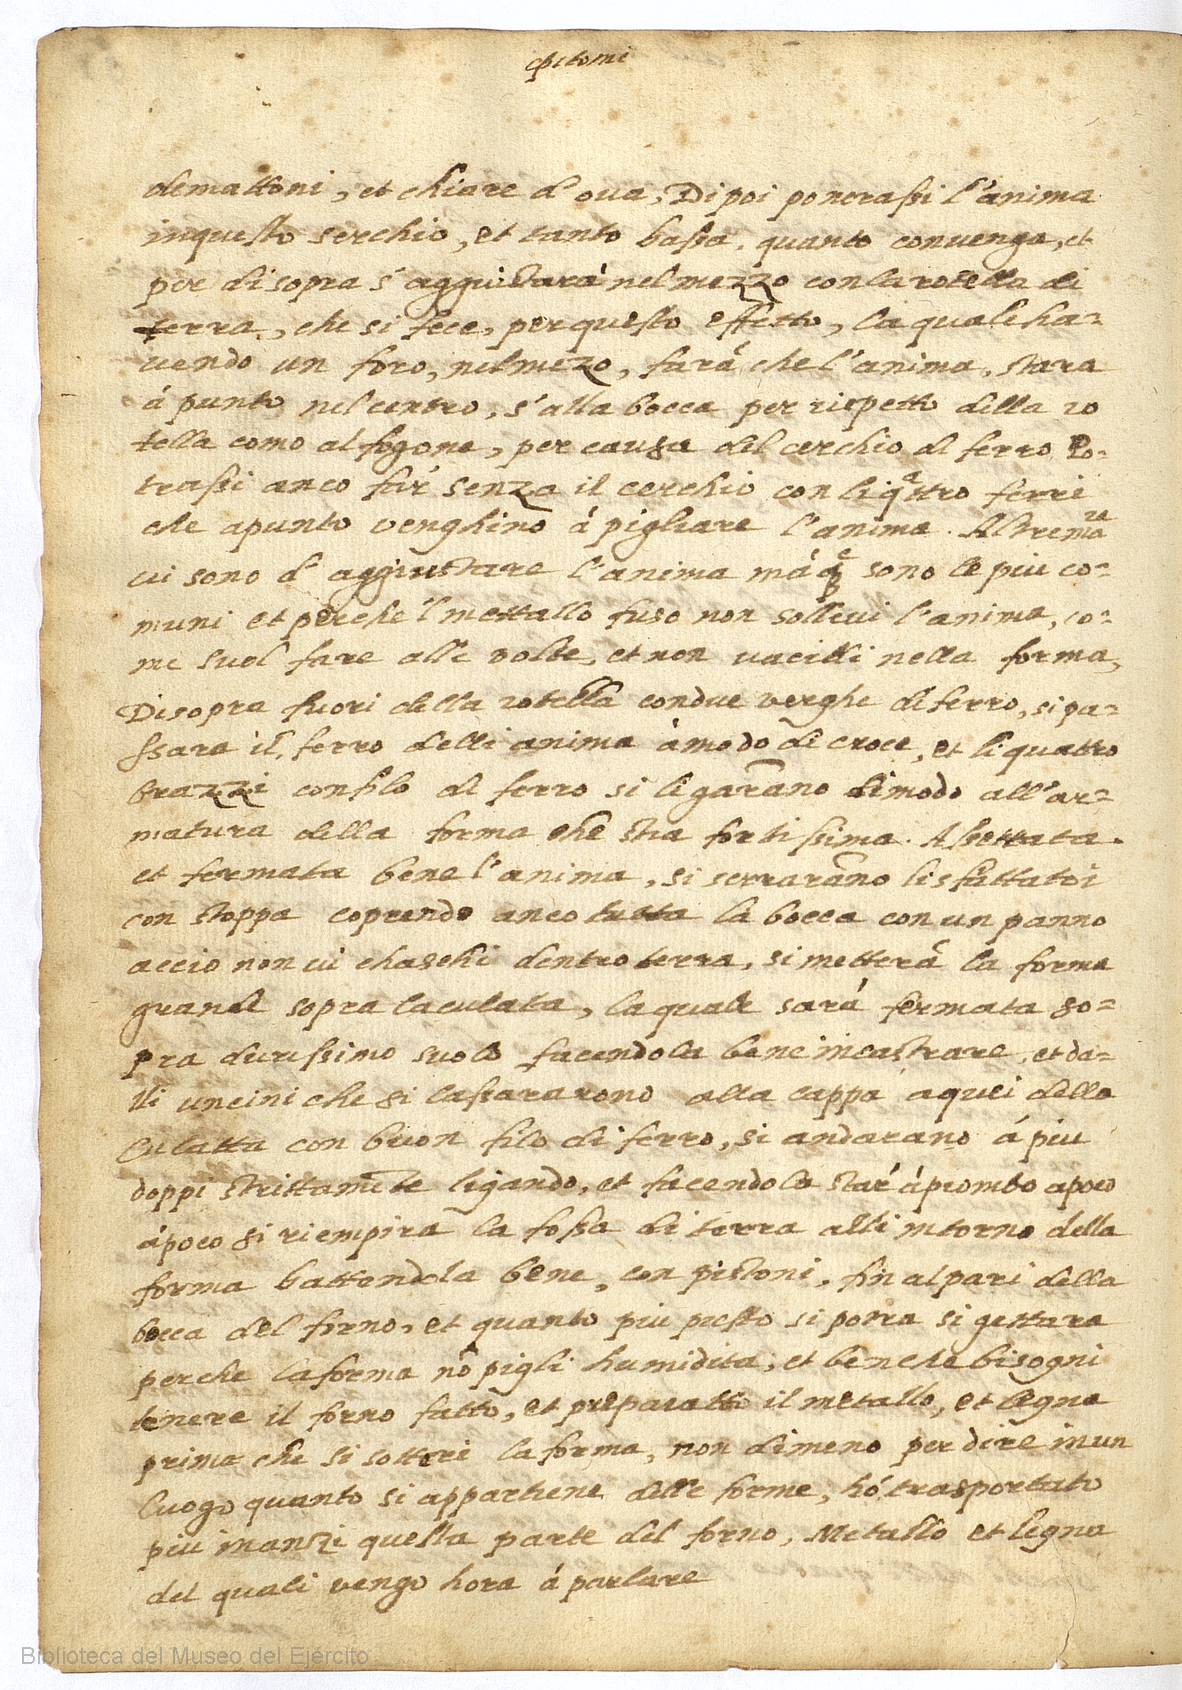 epitomi
demattoni, et chiare d' oua, Dipoi ponerassi l'anima
inquesto serchio, et tanto bassa, quanto convenga, et
per disopra s' aggiustará nel mezzo con la rotella di
terra, che si fece, per questo effetto, la quale ha-
uendo un foro, nel mezo, fará che l'anima, stara
á punto nel centro, s' alla bocca per rispetto della ro
tella como al fogone, per causa del cerchio di ferro Po-
trassi anco far senza il cerchio con li qattro ferri
che apunto venghino á pigliare l'anima. Altre ma
ui sono d' aggiustare l'anima má qe sono le piu co-
muni et perche il mettallo fuso non solleui l'anima, co-
me suol fare alle volte, et non uacilli nella forma,
Disopra fuori della rotella con due verghe di ferro, si pa-
ssara il ferro dell anima ámodo di croce, et li quattro
brazzi con filo di ferro si ligarãno dimodo all'ar-
matura della forma che stia fortissima. Assettata
et fermata bene l'anima, si serrarãno li sfiattatoi
con stoppa coprendo anco tutta la bocca con un panno
accio non ui chaschi dentro terra, si metterá la forma
grande sopra la culatta, la quale sará fermata so-
pra durissimo suolo facendola bene incastrare, et da-
lli uncini che si lassararono alla cappa aquei della
Culatta con buon filo di ferro, si andarano á piu
doppi strittamẽte ligando, et facendola star ápiombo apoco
ápoco si riempira la fossa di terra alli intorno della
forma battendola bene, con pistoni, fin alpari della
bocca del forno, et quanto piu presto si potra si gettara
perche la forma nõ pigli humidita, et benche bisogni
tenere il forno fatto, et preparatto il metallo, et legna
prima che si sotteri la forma, non dimeno per dire inun
luogo quanto si appartiene delle forme, hó trasportato
piu inanzi quella parte del forno, Metallo et legna
del quali vengo hora á parlare
Biblioteca del Museo del Ejército